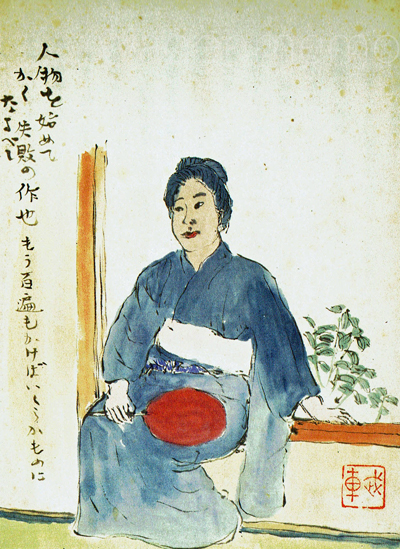 人物を始めて
かく失敗の作也 もう百遍もかけばいくらかものに
なるべし